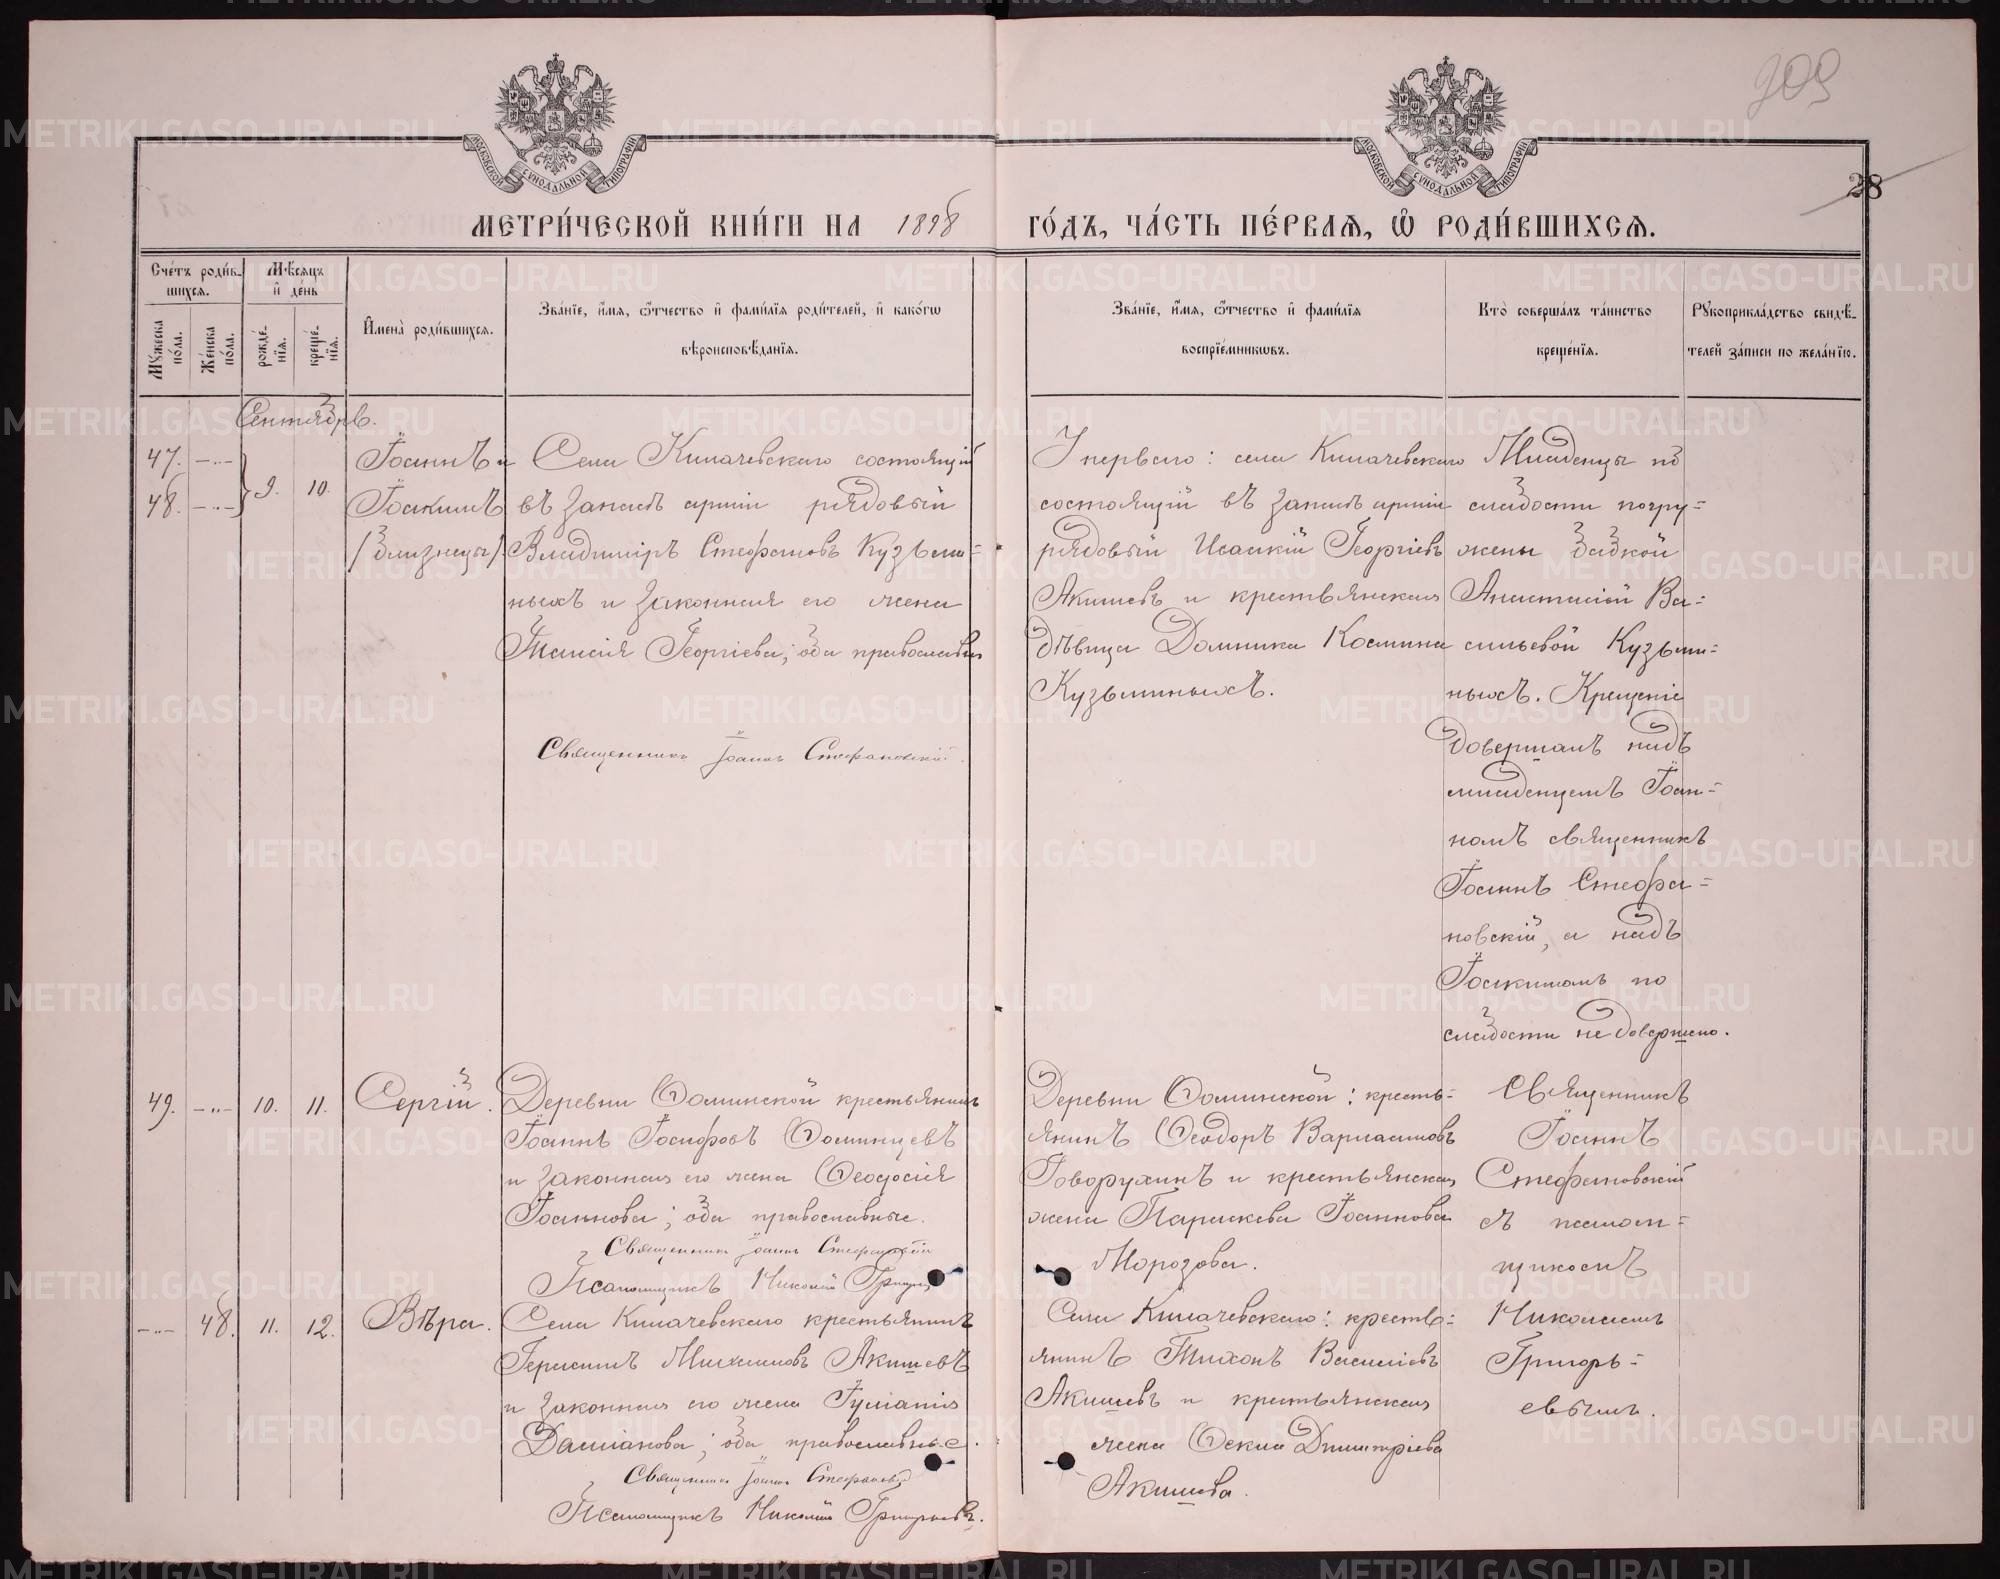 209
28
МОСКОВСКОЙ СУНОДАЛЬНОЙ ТИПОГРАФІИ
МОСКОВСКОЙ СУНОДАЛЬНОЙ ТИПОГРАФІИ
МЕТРИ́ЧЕСКОЙ КНИ́ГИ НА 1898 ГО́ДЪ, ЧА́СТЬ ПЕ́РВАѦ, Ѽ РОДИ́ВШИХСѦ.
Сче́тъ роди́в-
шихсѧ.
Мѣ́сѧцъ
и҆ де́нь
Мꙋ́жеска по́ла.
Же́нска по́ла.
рожде́-
нїѧ.
креще́-
нїѧ.
И҆мена̀ роди́вшихсѧ.
Зва́нїе, и҆́мѧ, ѻ҆́тчество и҆ фами́лїѧ роди́телей, и҆ како́гѡ
вѣроисповѣ́данїѧ.
Зва́нїе, и҆́мѧ, ѻ҆́тчество и҆ фами́лїѧ
воспрїе́мникѡвъ.
Кто̀ соверша́лъ та́инство
креще́нїѧ.
Рꙋкоприкла́дство свидѣ́-
телей за́писи по жела́нїю.
Сентябрь.
47. -..-
48. -..-
9. 10.
Іоаннъ и
Іоакимъ
/близнецы/.
Села Килачевскаго состоящій
въ запасѣ арміи рядовый
Владиміръ Стефановъ Кузьми-
ныхъ и законная его жена
Таисія Георгіева; оба православн.
Священникъ Іоаннъ Стефановскій.
У перваго: села Килачевскаго
состоящій въ запасѣ арміи
рядовый Исаакій Георгіевъ
Акишевъ и крестьянская
дѣвица Домника Космина
Кузьминыхъ.
Младенцы по
слабости погру-
жены бабкой
Анастасіей Ва-
сильевой Кузьми-
ныхъ. Крещеніе
довершалъ надъ
младенцемъ Іоан-
номъ священникъ
Іоаннъ Стефа-
новскій, а надъ
Іоакимомъ по
слабости не довершено.
49. -..- 10. 11. Сергій.
Деревни Фоминской крестьянинъ
Іоаннъ Іосифовъ Фоминцевъ
и законная его жена Феодосія
Іоаннова; оба православные.
Священникъ Іоаннъ Стефановскій
Псаломщикъ Николай Григорьевъ
Деревни Фоминской: кресть-
янинъ Феодоръ Варлаамовъ
Говорухинъ и крестьянская
жена Параскева Іоаннова
Морозова.
Священникъ
Іоаннъ
Стефановскій
съ псалом-
щикомъ
Николаемъ
Григорь-
евымъ.
-..- 48. 11. 12. Вѣра.
Села Килачевскаго крестьянинъ
Герасимъ Михаиловъ Акишевъ
и законная его жена Іуліанія
Даміанова; оба православные.
Священникъ Іоаннъ Стефановскій
Псаломщикъ Николай Григорьевъ.
Села Килачевскаго: кресть-
янинъ Тихонъ Василіевъ
Акишевъ и крестьянская
жена Фекла Димитріева
Акишева.
METRIKI.GASO-URAL.RU